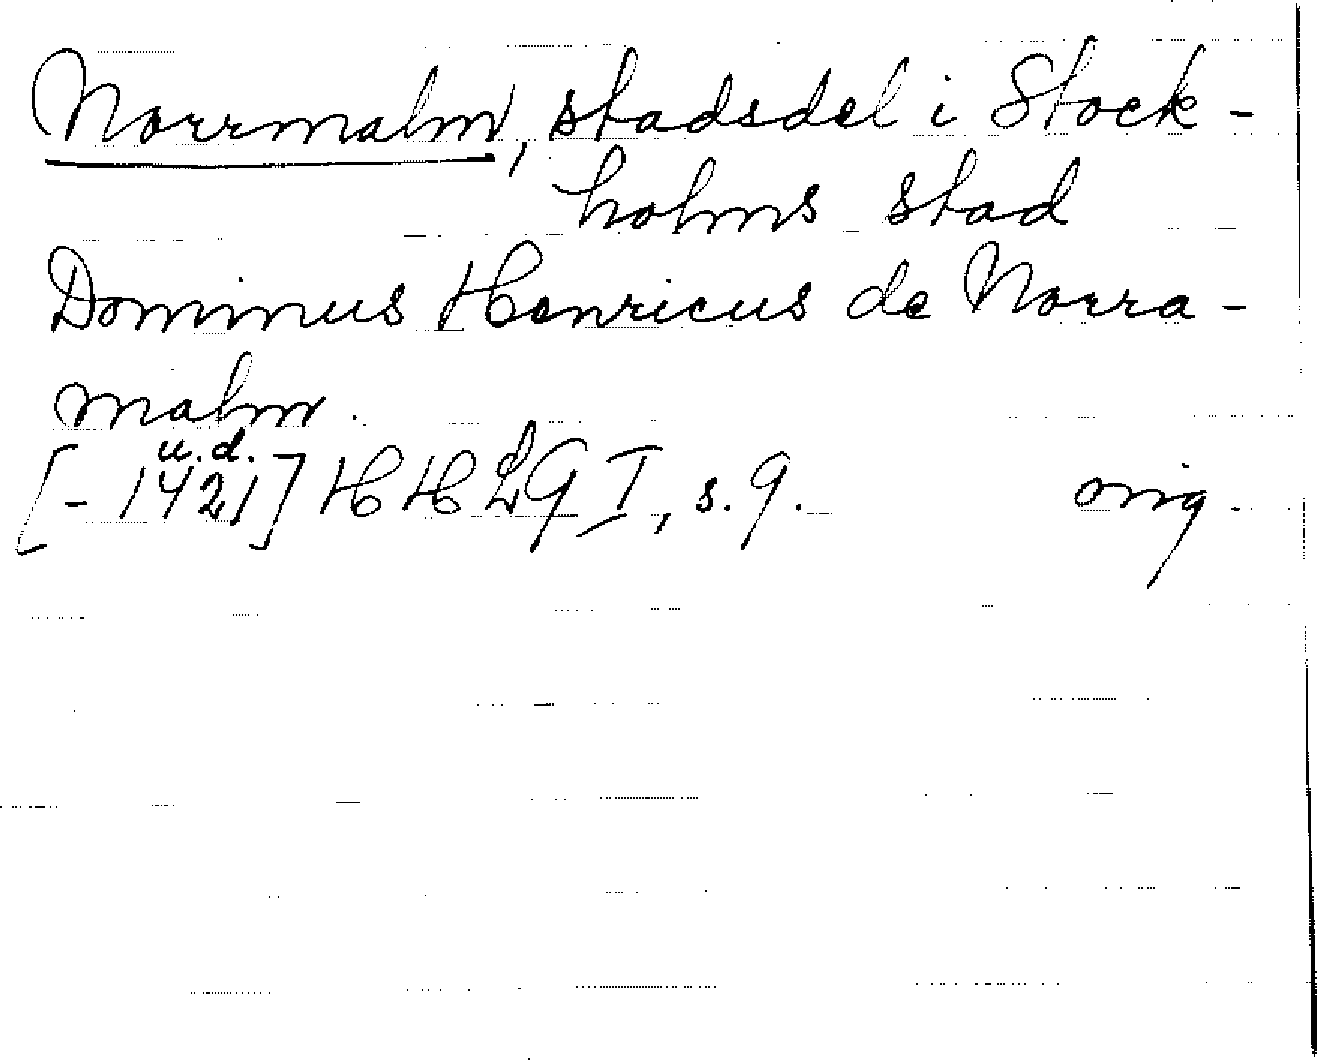 Norrmalm, stadsdel i Stock-
holms stad
Dominus Henricus de Norra-
malm.
u.d.
[- 1421] HHLG I, s. 9. orig.